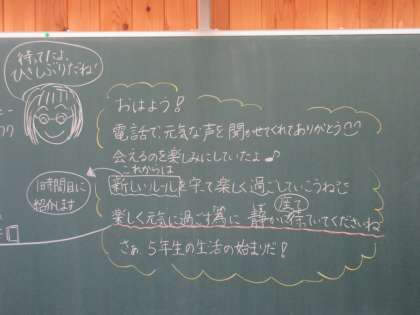 待ってたよ、
ひさしぶりだね!
おはよう!
電話で、元気な声を聞かせてくれてありがとう
会えるのを楽しみにしていたよ♪
これからは
新しいルールを守って楽しく過ごしていこうね
1時間目に
紹介します
座って
楽しく元気に過ごす為に静かに待っていてくださいね
さぁ、5年生の生活の始まりだ!